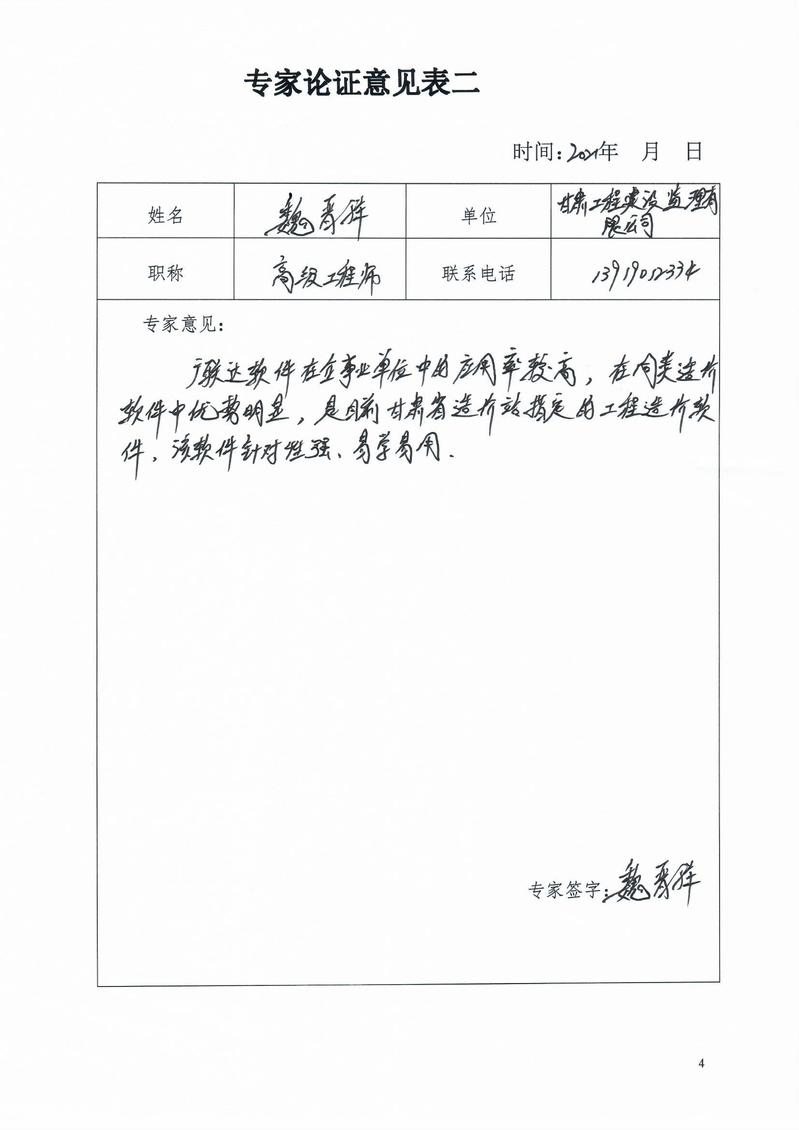 专家论证意见表二
时间:2021年 月 日
姓名 魏晋祥 单位 甘肃工程建设监理有
限公司
职称 高级工程师 联系电话 13919012334
专家意见:
广联达软件在企事业单位中的应用率较高,在同类造价
软件中优势明显,是目前甘肃省造价站指定的工程造价软
件,该软件针对性强、易学易用.
专家签字:魏晋祥
4